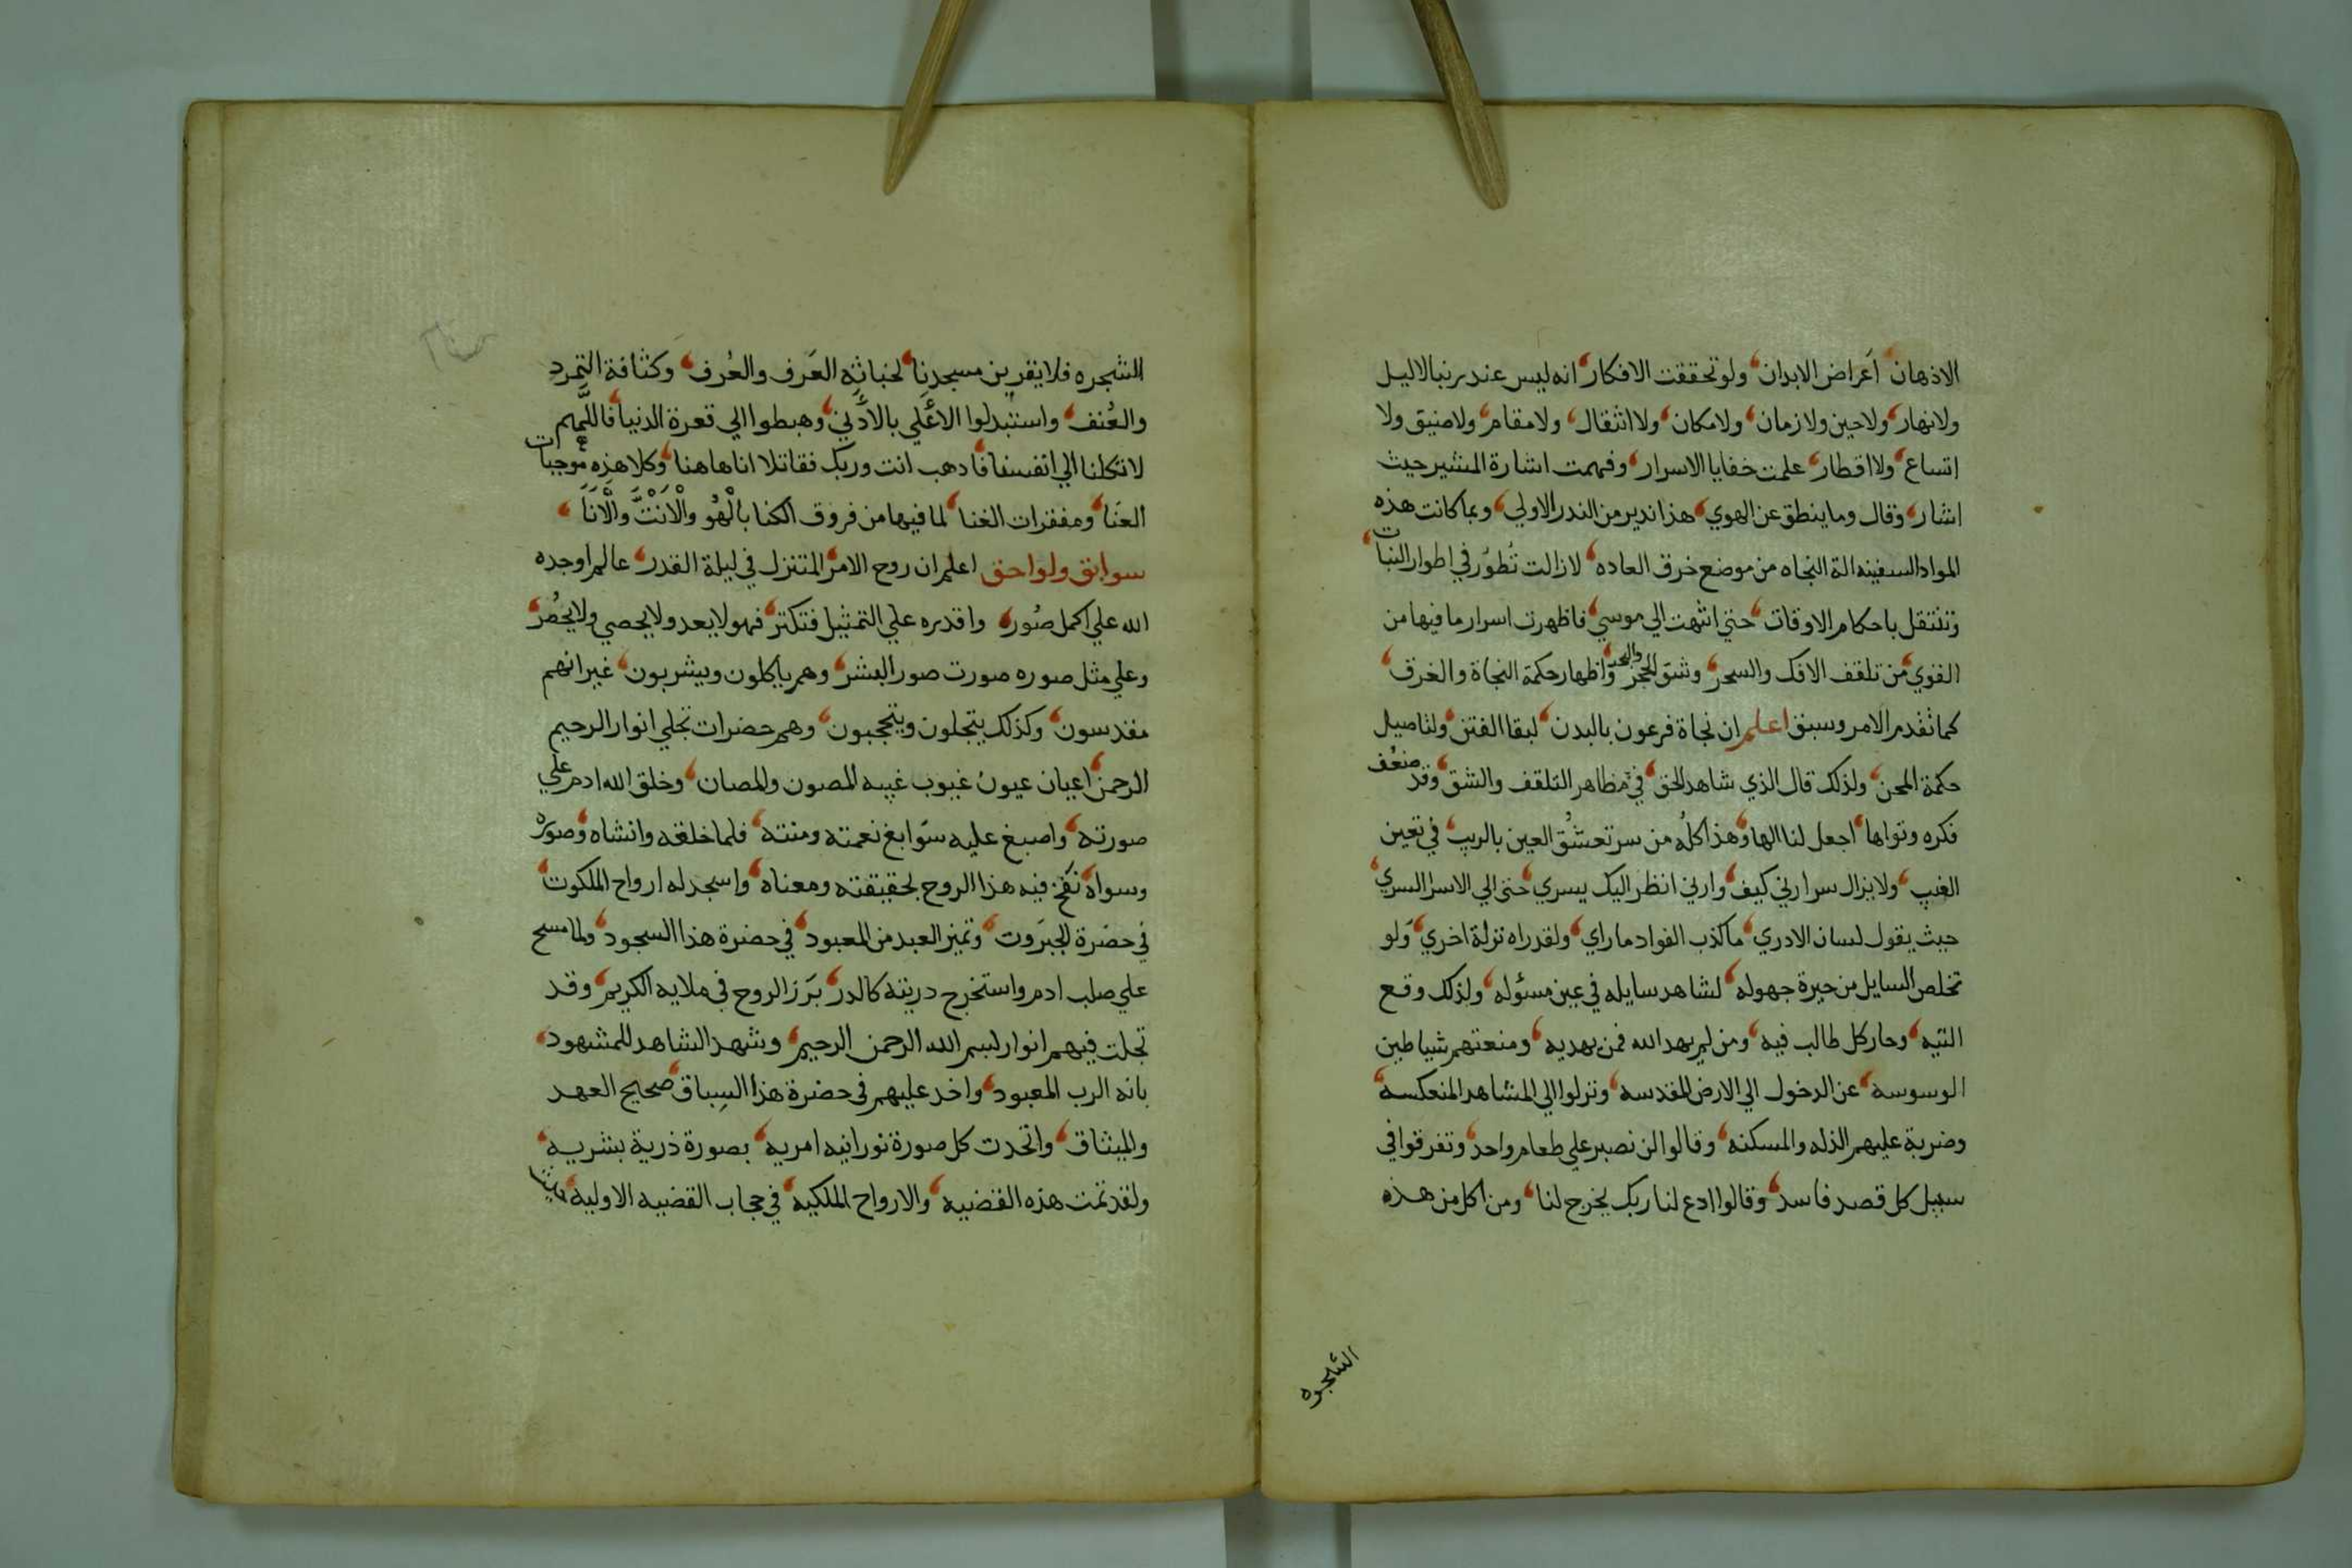 الاذهان أعراض الابدان ولو تحققت الافكار انه ليس عند ربنا لا ليل
ولا نهار ولا حين ولا زمان ولا مكان ولا انتقال ولا مقام ولا ضيق ولا
اتساع ولا اقطار علمت خفايا الاسرار وفهمت اشارة المشير حيث
اشار وقال وما ينطق عن الهوي هذا نذير من الندر الاولي وبما كانت هذه
المواد السفينه الة النجاه من موضع خرق العاده لا زالت تُطوّر في اطوار النبات
وتنتقل باحكام الاوقات حتي انتهت الي موسي فاظهرت اسرار ما فيها من
القوي من تلقف الافك والسحر وشق الحجر والبحر واظهار حكمة النجاة والغرق
كما تقدم الامر وسبق اعلم ان نجاة فرعون بالبدن لبقا الفتن ولتاصيل
حكمة المحن ولذلك قال الذي شاهد الحق في مظاهر التلقف والشق وقد ضعُف
فكره وتواها اجعل لنا الها وهذا كلّه من سر تعشّق العين بالريب في تعين
الغيب ولا يزال سر ارني كيف وارني انظر اليك يسري حتى الي الاسرا السري
حيث يقول لسان الادري ما كذب الفواد ما راي ولقد راه نزلة اخري وَلو
تخلص السايل من حيرة جهوله لشاهد سايله في عين مسئوله ولذلك وقع
التيه وحار كل طالب فيه ومن لم يهد الله فمن يهديه ومنعتهم شياطين
الوسوسة عن الدخول الي الارض المقدسه ونزلوا الي المشاهد المنعكسة
وضربة عليهم الذله والمسكنه وقالوا لن نصبر علي طعام واحد وتفرقوا في
سبيل كل قصد فاسد وقالوا ادع لنا ربك يخرج لنا ومن اكل من هذه
الشجره
الشجره فلا يقربن مسجدنا لخباثة العَرف والعُرف وكثافة التمرد
والعُنف واستبدلوا الأعلي بالأدني وهبطوا الي قعرة الدنيا فاللّهم
لا تكلنا الي انفسنا فادهب انت وربك فقاتلا انا هاهنا وكلا هذه موجبات
العنَا ومفقرات الغنا لما فيها من فروق الكنا بالْهُو والْاَنْتَ والْاَنَا
سوابق ولواحق اعلم ان روح الامر المتنزل في ليلة القدر عالم اوجده
الله علي اكمل صُور واقدره علي التمثيل فتكثر فهو لا يعد ولا يحصي ولا يحُصر
وعلي مثل صوره صورت صور البشر وهم ياكلون ويشربون غير انهم
مقدسون وكذلك يتجلون ويتحجبون وهم حضرات تجلي انوار الرحيم
الرحمن اعيان عيون غيوب غيبه المصون والمصان وخلق الله ادم علي
صورته واصبغ عليه سَوابغ نعمته ومنته فلما خلقه وانشاه وصوره
وسواه نفخ فيه هذا الروح بحقيقته ومعناه واسجد له ارواح الملكوت
في حضرة الجبَروت وتميز العبد من المعبود في حضرة هذا السجود ولما مسح
علي صلب ادم واستخرج دريته كالدر بَرَز الروح في ملايه الكريم وقد
تجلت فيهم انوار بسم الله الرحمن الرحيم وشهد الشاهد للمشهود
بانه الرب المعبود واخد عليهم في حضرة هذا السِباق صحيح العهد
والميثاق واتحدت كل صورة نورانيه امريه بصورة ذرية بشريه
ولقد تمت هذه القضيه والارواح الملكيه في حجاب القضيه الاوليه